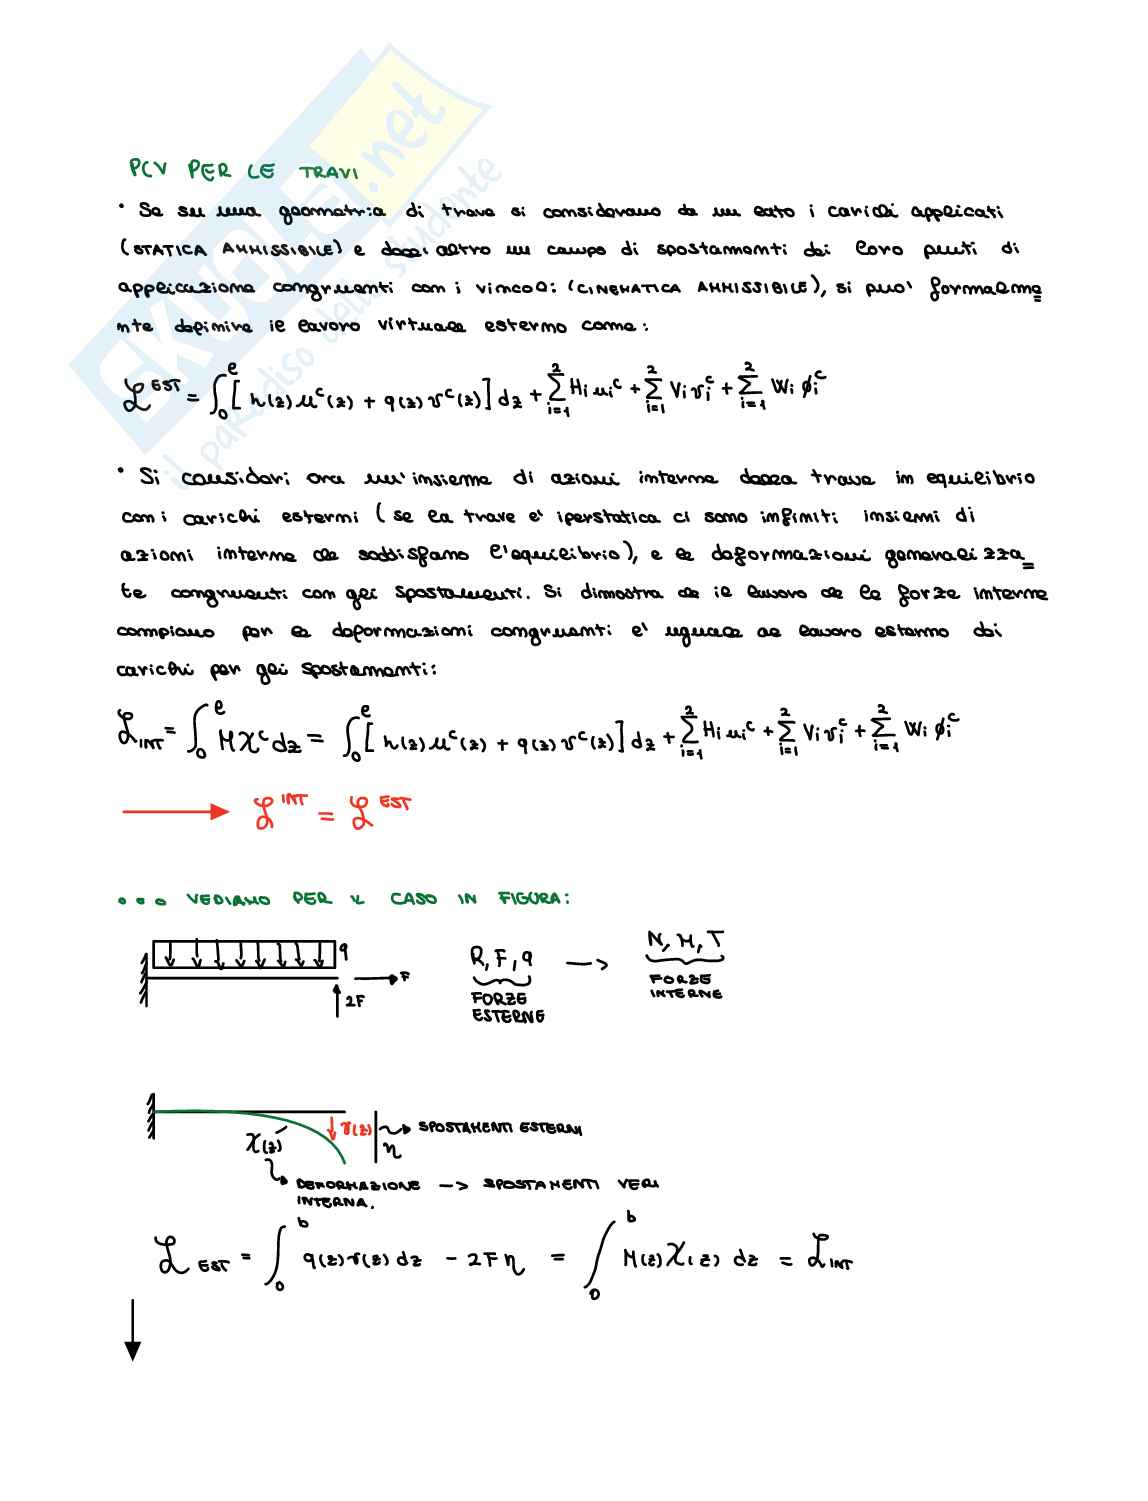 PCV PER LE TRAVI
• Se su una geometria di trave si considerano da un lato i carichi applicati
(STATICA AMMISSIBILE) e dall'altro un campo di spostamenti dei loro punti di
applicazione congruenti con i vincoli (CINEMATICA AMMISSIBILE), si puo' formalme=
nte definire il lavoro virtuale esterno come:
ℒ^EST = ∫_0^l [h(z) u^c(z) + q(z) v^c(z)] dz + Σ_{i=1}^2 H_i u_i^c + Σ_{i=1}^2 V_i v_i^c + Σ_{i=1}^2 W_i ϕ_i^c
• Si consideri ora un'insieme di azioni interne della trave in equilibrio
con i carichi esterni (se la trave e' iperstatica ci sono infiniti insiemi di
azioni interne che soddisfano l'equilibrio), e le deformazioni generalizza=
te congruenti con gli spostamenti. Si dimostra che il lavoro che le forze interne
compiono per le deformazioni congruenti e' uguale al lavoro esterno dei
carichi per gli spostamenti:
ℒ_INT = ∫_0^l M χ^c dz = ∫_0^l [h(z) u^c(z) + q(z) v^c(z)] dz + Σ_{i=1}^2 H_i u_i^c + Σ_{i=1}^2 V_i v_i^c + Σ_{i=1}^2 W_i ϕ_i^c
→ ℒ^INT = ℒ^EST
... VEDIAMO PER IL CASO IN FIGURA:
q
F
2F
R, F, q → N, M, T
FORZE ESTERNE
FORZE INTERNE
v(z)
η
SPOSTAMENTI ESTERNI
χ(z)
DEFORMAZIONE → SPOSTAMENTI VERI
INTERNA.
ℒ_EST = ∫_0^b q(z) v(z) dz - 2F η = ∫_0^b M(z) χ(z) dz = ℒ_INT
SKUOLA.net
il paradiso dello studente